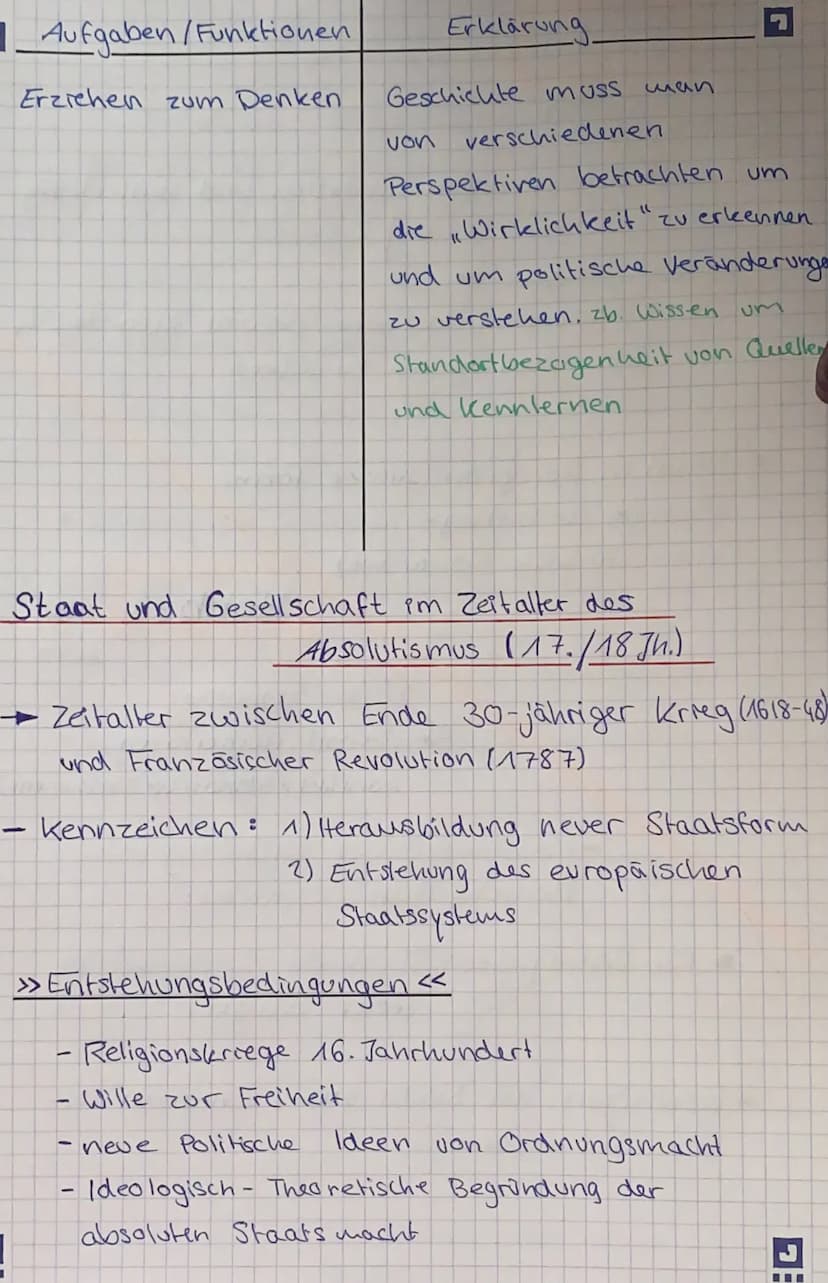 Aufgaben/Funktionen
Erklärung
Erziehen zum Denken
Geschichte muss man
von verschiedenen
Perspektiven betrachten um
die „Wirklichkeit" zu erkennen
und um politische Veränderunge
zu verstehen. zb. Wissen um
Standortbezogenheit von Quellen
und Kennlernen
Staat und Gesellschaft im Zeitalter des
Absolutismus (17./18 Jh.)
→ Zeitalter zwischen Ende 30-jähriger Krieg (1618-48)
und Französischer Revolution (1787)
- Kennzeichen: 1) Herausbildung neuer Staatsform
2) Entstehung des europäischen
Staatssystems
>> Entstehungsbedingungen <<
- Religionskriege 16. Jahrhundert
- Wille zur Freiheit
- neue Politische Ideen von Ordnungsmacht
- Ideologisch - Theoretische Begründung der
absoluten Staatsmacht